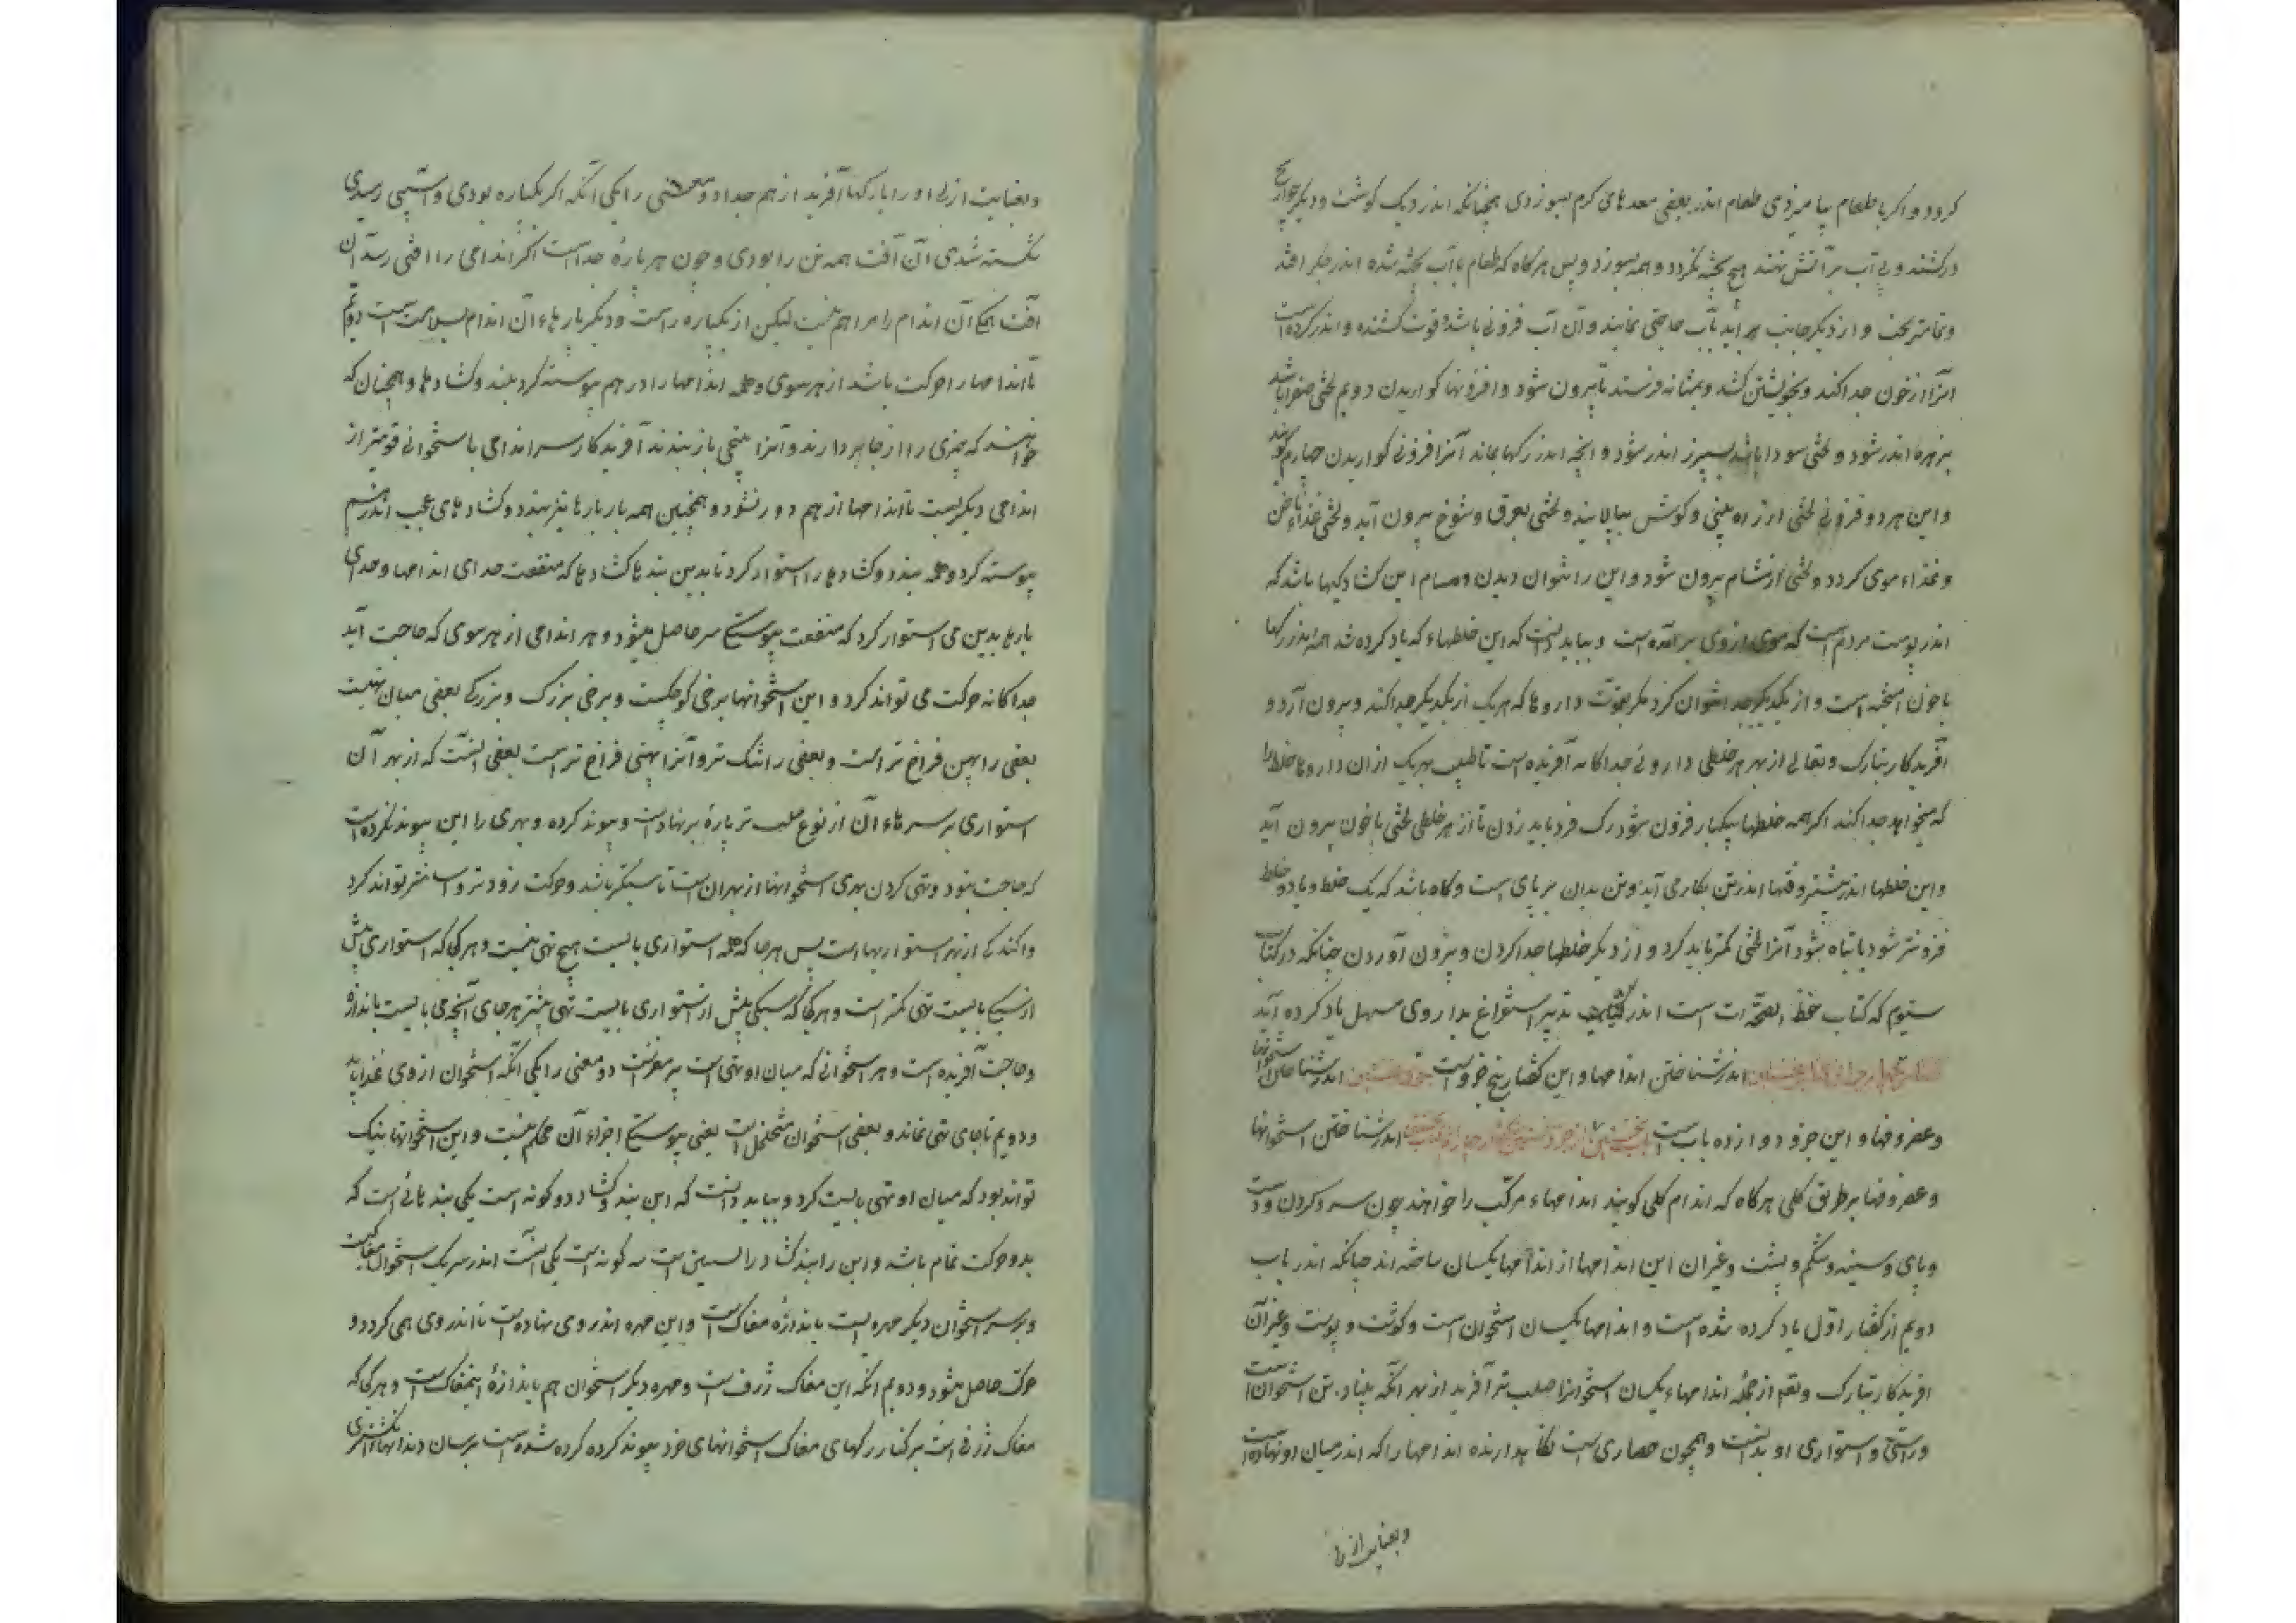 کردد و اکر با طعام بیامیزدی طعام اندر بعضی معدهای کرم بسوزدی همچنانکه اندر دیک کوشت و دیکر حوایج
درکنند و بی آب بر آتش نهند هیچ پخته نکردد و همه بسوزد و پس هرکاه که طعام با آب پخته شده اندر جکر افتد
و تمامتر پخت و از دیکر جانب برآید بآب حاجتی نماند و آن آب فزونی باشد و قوت کشنده و اندر کرده است
آنرا از خون جدا کند و بخویشتن کشد و بمثانه فرستد تا بیرون شود و افزونیها کواریدن دویم لختی صفرا باشد
بزهره اندر شود و لختی سودا باشد بسپرز اندر شود و آنچه اندر رکها بماند آنرا فزونی کواریدن چهارم کویند
و این هر دو فزونی لختی از راه بینی و کوش بپالاید و لختی بعرق و شوخ بیرون آید و لختی غذاء ناخن
و غذاء موی کردد و لختی از مشام بیرون شود و این را نتوان دیدن و مسام این کشادکیها باشد که
اندر پوست مردم است که موی از وی برآمده است و بباید دانست که این خلطهاء که یاد کرده شد همه اندر رکها
با خون آمیخته است و از یکدیکر جدا نتوان کرد مکر بقوت داروها که هر یک از یکدیکر جدا کند و بیرون آرد و
آفریدکار تبارک و تعالی از بهر هر خلطی داروئی جداکانه آفریده است تا طبیب بهر یک ازان داروها خلط را
که میخواهد جدا کند اکر همه خلطها بیکبار فزون شود رک فرو باید زدن تا از هر خلطی لختی با خون بیرون آید
و این خلطها اندر بیشتر وقتها اندر تن بکار می آید و تن بدان بر پای است و کاه باشد که یک خلط و یا دو خلط
فزونتر شود یا تباه شود آنرا لختی کمتر باید کرد و از دیکر خلطها جدا کردن و بیرون آوردن چنانکه در کتاب
سیوم که کتاب حفظ الصحه است اندر تدبیر استفراغ بداروی مسهل یاد کرده آید
کفتار چهارم از کتاب نخستین اندر شناختن اندامها و این کفتار پنج جزو است جزو نخستین اندر شناختن استخوانها
و غضروفها و این جزو دوازده باب است باب نخستین از جزو نخستین از کفتار چهارم از کتاب نخستین اندر شناختن استخوانها
و غضروفها بر طریق کلی هرکاه که اندام کلی کویند اندامهاء مرکب را خواهند چون سر و کردن و دست
و پای و سینه و شکم و پشت و غیر آن این اندامها از اندامها یکسان ساخته اند چنانکه اندر باب
دویم از کفتار اول یاد کرده شده است و اندامها یکسان استخوان است و کوشت و پوست و غیر آن
آفریدکار تبارک و تعالی از جمله اندامهاء یکسان استخوانرا صلب تر آفرید از بهر آنکه بنیاد تن استخوان است
و راستی و استواری او بدانست و همچون حصاری است نکاهدارنده اندامها را که اندر میان او نهاده است
و بعنایت ازلی
و بعنایت ازلی او را پارکها آفرید از هم جدا دو معنی را یکی آنکه اکر یکپاره بودی و آسیبی رسیدی
شکسته شدی آن آفت همه تن را بودی و چون هر پارهٔ جداست اکر اندامی را آفتی رسد آن
آفت همکی آن اندام را هم نیست لیکن از یکپاره راست و دیکر پارهاء آن اندام بسلامت است دویم
تا اندامها را حرکت باشد از هر سوی و جمله اندامها را در هم پیوسته کرد ببند و کشادها و همچنان که
خواهند که چیزی را از جا بردارند و آنرا بمیخی باز بندند آفریدکار سر اندامی با استخوانی قویتر از
اندامی دیکر بست تا اندامها از هم دور نشود و همچنین همه پارپارها نیز ببندد و کشادهای عجب اندر هم
پیوسته کرد و جمله ببند و کشادها را استوار کرد تا بدین بندها کشادها که منفعت جدای اندامها و جدای
پارها بدین می استوار کرد که منفعت پیوستکی سر حاصل میشود و هر اندامی از هر سوی که حاجت آید
جداکانه حرکت می تواند کرد و این استخوانها برخی کوچکست و برخی بزرک و بزرکی بعضی میان تهیست
بعضی را بهین فراخ تر است و بعضی را تنک تر و آنرا تهی فراخ تر است بعضی آنست که از بهر آن
استواری بر سرهاء آن از نوع صلب تر پارهٔ بر نهاده است و پیوند کرده و بهری را این پیوند نکرده است
که حاجت نبود و تهی کردن بهری استخوانها از بهر آن است تا سبکتر باشد و حرکت زودتر و آسانتر تواند کرد
و آکندکی از بهر استواریها است پس هرجا که جمله استواری بایست هیچ تهی نیست و هرکجا که استواری بیش
از سبکی بایست تهی کمتر است و هرکجا که سبکی بیش از استواری بایست تهی بیشتر هر جای آنچه می بایست باندازه
و حاجت آفریده است و هر استخوانی که میان او تهی است پر مغز است دو معنی را یکی آنکه استخوان از وی غذا یابد
و دویم تا جای تهی نماند و بعضی استخوان متخلخل است یعنی پیوستکی اجزاء آن محکم نیست و این استخوانها بنیک
تواند بود که میان او تهی بایست کرد و بباید دانست که این بند و کشاد دو کونه است یکی بند هائی است که
بدو حرکت تمام باشد و این را بند کشاد راستین است سه کونه است یکی آنست اندر سر یک استخوان مغاکیست
و بر سر استخوان دیکر مهره ایست باندازهٔ مغاک است و این مهره اندر وی نهاده است تا اندر وی همی کردد و
حرکت حاصل میشود و دویم آنکه این مغاک ژرف است و مهره دیکر استخوان هم باندازهٔ این مغاک است و هرکجا که
مغاک ژرفی است بر کنار رکهای مغاک استخوانهای خرد پیوند کرده کرده شده است بر سان دندانهاء انکشتری